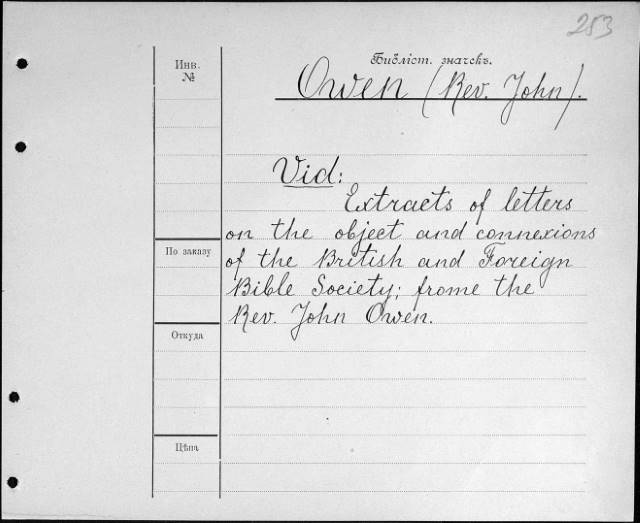 253
Инв.
№
Библіот. значекъ.
Owen (Rev. John).
Vid:
Extracts of letters
on the object and connexions
of the British and Foreign
Bible Society; frome the
Rev. John Owen.
По заказу
Откуда
Цѣнъ